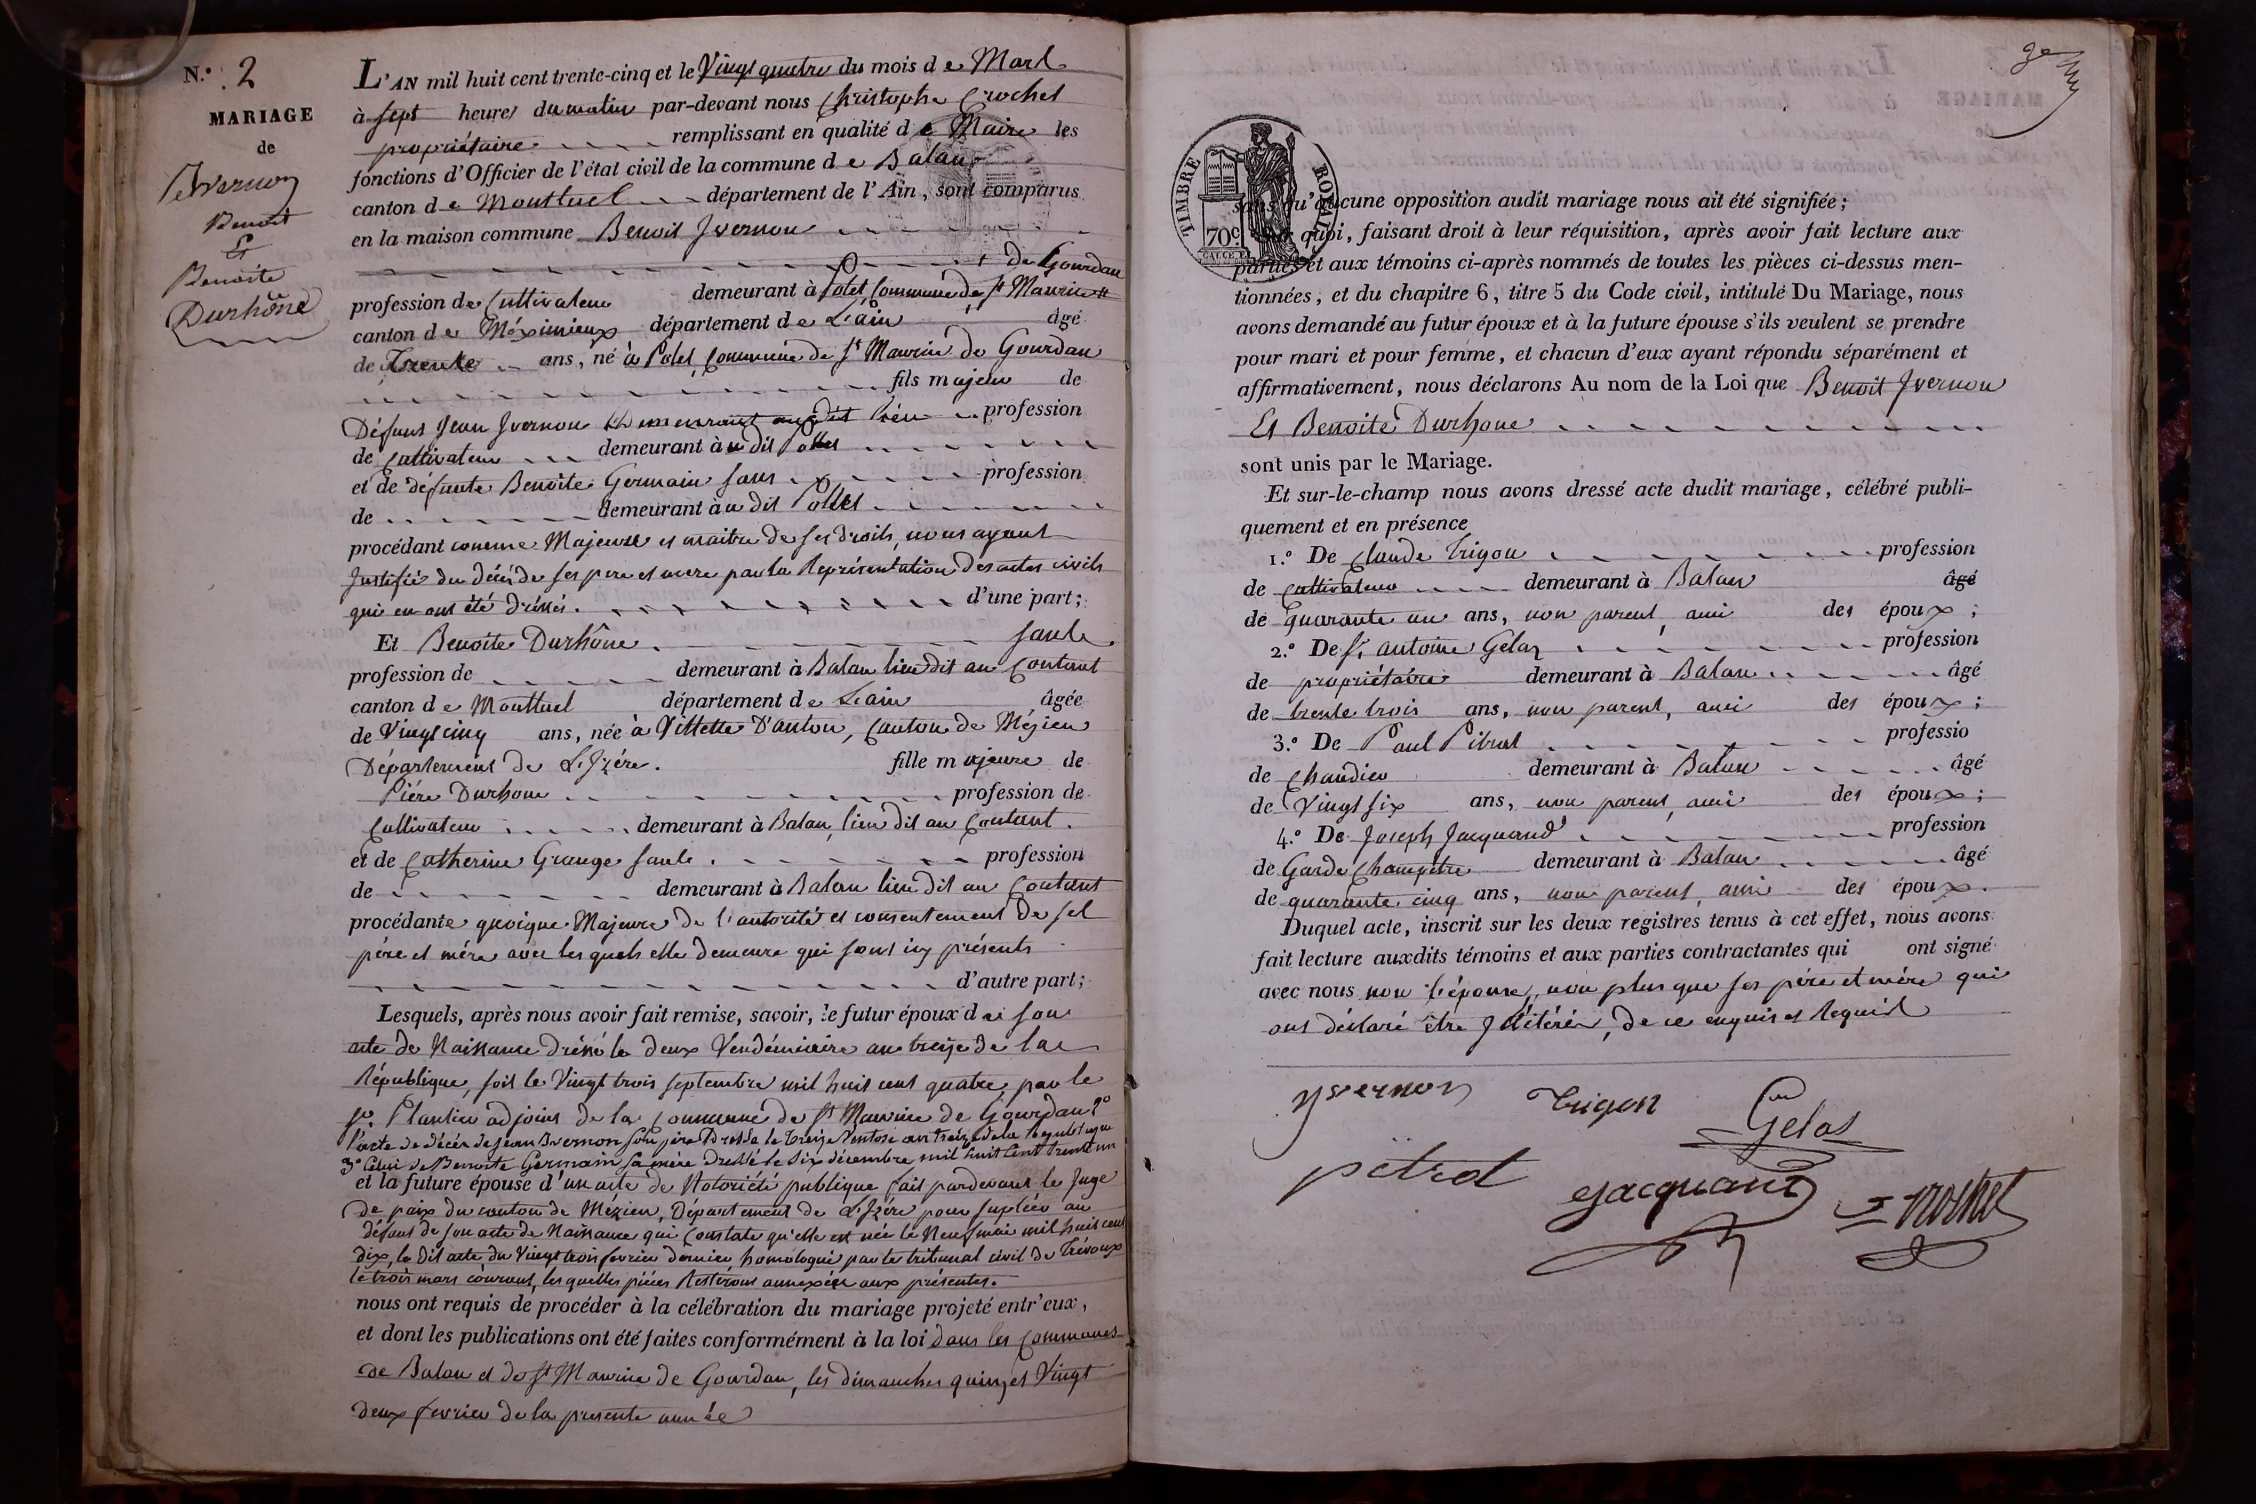 N.° 2
MARIAGE
de
Benoit
Et
Benoite
Durhône
L'AN mil huit cent trente-cinq et le Vingt quatre du mois de Mars
à sept heures du matin par-devant nous Christophe Crochet
propriétaire remplissant en qualité de Maire les
fonctions d'Officier de l'état civil de la commune de Balan
canton de Montluel département de l'Ain, sont comparus
en la maison commune Benoit Jvernon
de Gourdan
profession de Cultivateur demeurant à Polet Commune de St Maurice
canton de Méximieux département de L'ain âgé
de Trente ans, né à Polet Commune de St Maurice de Gourdan
fils majeur de
Défunt Jean Jvernon demeurant au dit lieu profession
de Cultivateur demeurant à u dit Pollet
et de défunte Benoite Germain sans profession
de demeurant à u dit Pollet
procédant comme Majeure et maitre de ses droits, nous ayant
Justifié du décès de ses pere et mere par la Représentation des actes civils
qui en ont été dréssés. d'une part;
Et Benoite Durhône sante
profession de demeurant à Balan lieu dit au Contant
canton de Montluel département de L'ain âgée
de Vingt cinq ans, née à Villette D'anton, Canton de Mézieu
Département de L'Jzére. fille majeure de
Piére Durhone profession de
Cultivateur demeurant à Balan, lieu dit au Contant.
et de Catherine Grange sante. profession
de demeurant à Balan lieu dit au Contant
procédante quoique Majeure de l'autorité et consentement de ses
pére et mére avec les quels elle demeure qui sont icy présents
d'autre part;
Lesquels, après nous avoir fait remise, savoir, le futur époux de son
acte de Naissance dréssé le deux Vendémiaire an treize de la
République, soit le Vingt trois septembre mil huit cent quatre, par le
sr. Plantier adjoint de la commune de St Maurice de Gourdan 2°
l'acte de décés de Jean Jvernon son père dressé le treize Ventose an treize de la République
3° Celui de Benoite Germain sa mère dressé le Six décembre mil huit Cent trente un
et la future épouse d'un acte de Notoriété publique fait pardevant le Juge
de paix du canton de Mézieu, Département de L'Jzére pour supléer au
défaut de son acte de Naissance qui Constate qu'elle est née le Neuf mai mil huit cent
dix, le dit acte du Vingt trois fevrier dernier, homologué par le tribunal civil de Trévoux
le trois mars courant, les quelles piéces Resteront annexées aux présentes.
nous ont requis de procéder à la célébration du mariage projeté entr'eux,
et dont les publications ont été faites conformément à la loi dans les Communes
de Balan et de St Maurice de Gourdan, les dimanches quinze et Vingt
deux fevrier de la presente année
TIMBRE ROYAL
70c
sans qu'aucune opposition audit mariage nous ait été signifiée;
quoi, faisant droit à leur réquisition, après avoir fait lecture aux
parties et aux témoins ci-après nommés de toutes les pièces ci-dessus men-
tionnées, et du chapitre 6, titre 5 du Code civil, intitulé Du Mariage, nous
avons demandé au futur époux et à la future épouse s'ils veulent se prendre
pour mari et pour femme, et chacun d'eux ayant répondu séparément et
affirmativement, nous déclarons Au nom de la Loi que Benoit Jvernon
Et Benoite Durhone
sont unis par le Mariage.
Et sur-le-champ nous avons dressé acte dudit mariage, célébré publi-
quement et en présence
1.° De Claude Trigon profession
de Cultivateur demeurant à Balan âgé
de quarante un ans, non parent, ami des époux;
2.° De sr. antoine Gelas profession
de propriétaire demeurant à Balan âgé
de trente trois ans, non parent, ami des époux;
3.° De Paul Pitrat professio
de demeurant à Balan âgé
de Vingt six ans, non parent, ami des époux;
4.° De Joseph Jacquand profession
de Garde Champêtre demeurant à Balan âgé
de quarante cinq ans, non parent, ami des époux.
Duquel acte, inscrit sur les deux registres tenus à cet effet, nous avons
fait lecture auxdits témoins et aux parties contractantes qui ont signé
avec nous non l'épouse, non plus que ses pére et mére qui
ont déclaré être Jlitérés, de ce enquis et Requis
yvernon Trigon Gelas
pitrat Jacquand Crochet